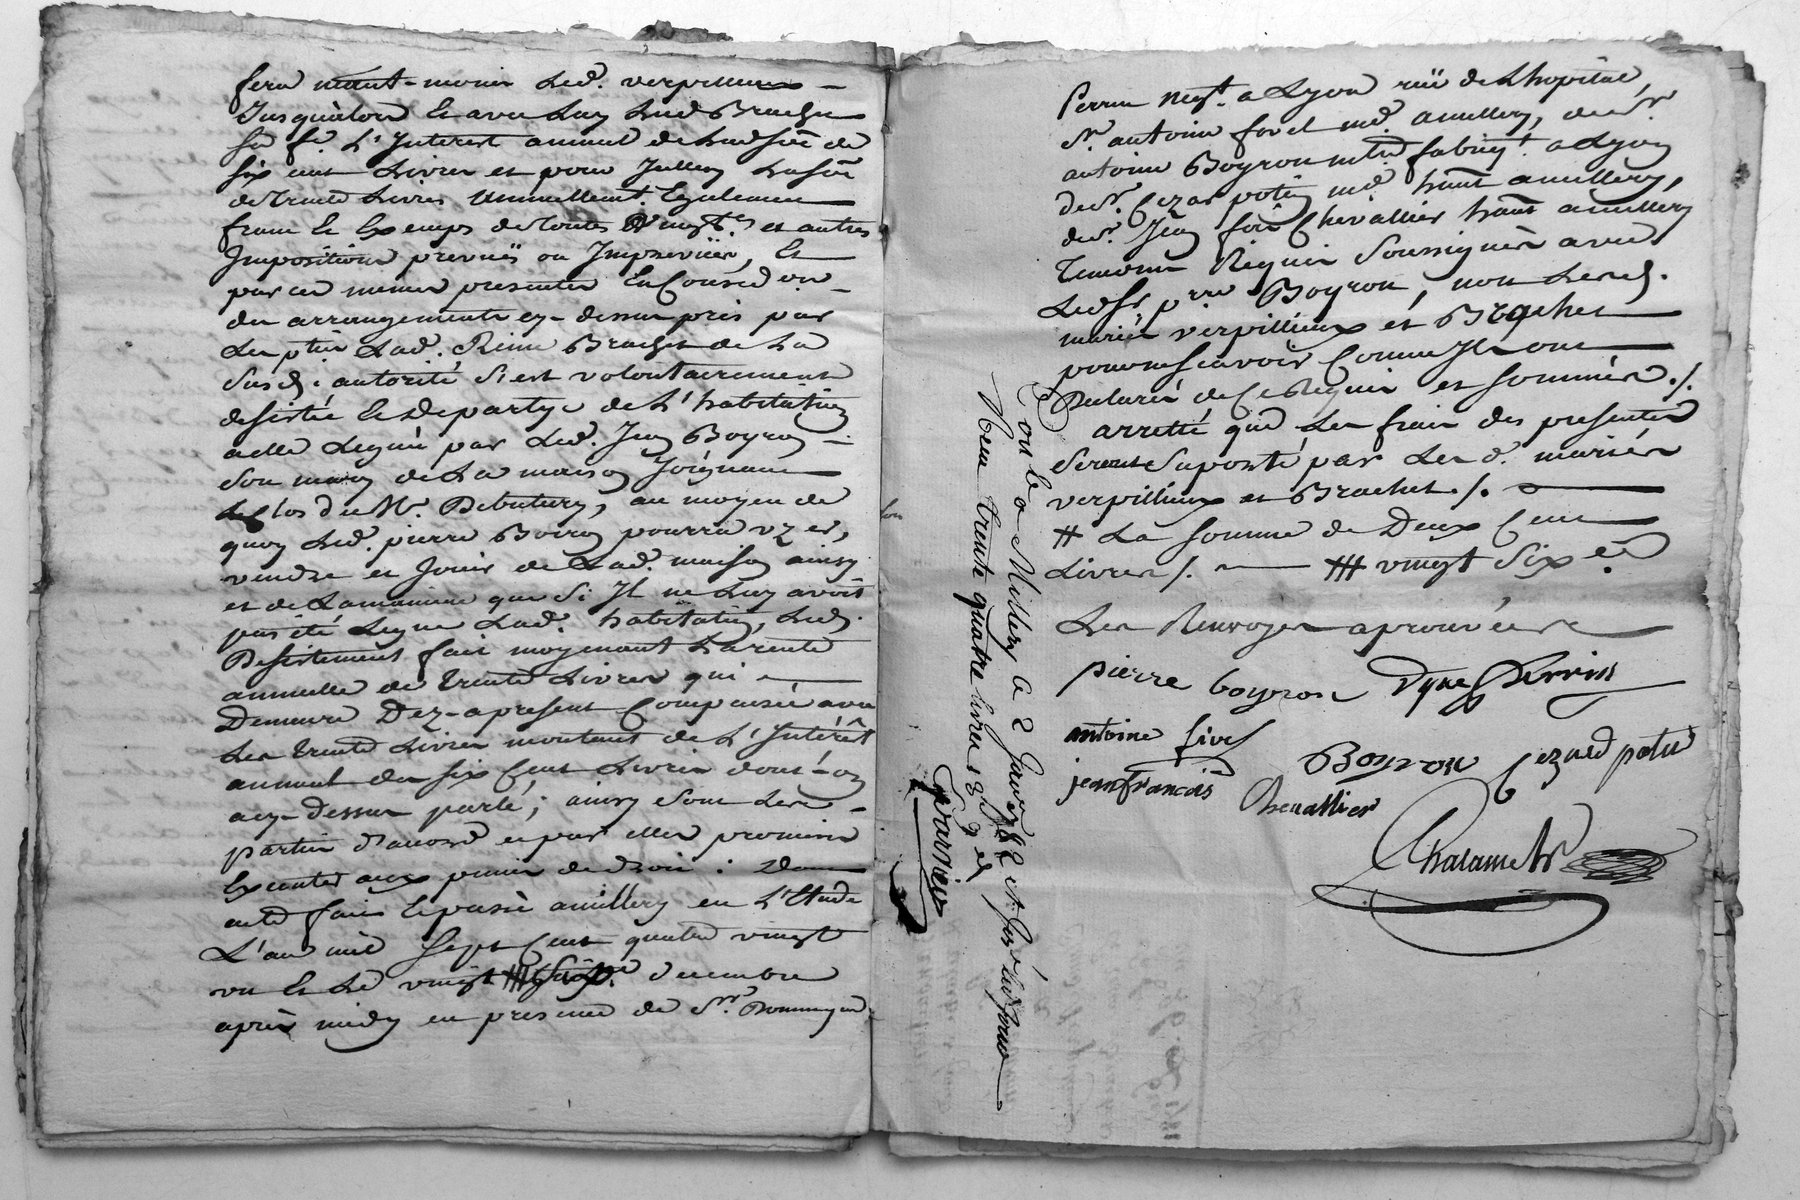 fera neant-moins Led. verpilleux
Jusqu'alors et avec Luy Lad. Brachet
sa fe. L'Interest annuel de Lad. sôe de
six cent Livres et pour Jcelluy La sôe
de trente Livres annuellement Egalement
franc et Exemps de toutes et autres
Impositions prevuës ou Impreveües, Et
par ces memes presentes En Consed.on
des arrangements cy-dessus pris par
Les pties Lad. Reine Brachet de La
susd. autorité s'est volontairement
desistée et departye de L'habitation
a elle Leguée par Led. Jean Boyron
son mary de La maison Joignant
Le Clos de Mr. Debutery, au moyen de
quoy Led. pierre Boiron pourra uzer,
vendre et Jouir de Lad. maison ainsy
et de La maniere que si Jl ne Luy avoit
pas été Legué Lad. habitation, Led.
Desistement fait moyenant La rente
annuelle de trente Livres qui
Demeure Dez-apresent Compensée avec
Les trente Livres montant de L'Intérêt
annuel des six Cent Livres dont on
a cy-dessus parlé; ainsy sont Les
parties d'accord et par elles promis
Executer aux peines de droit: Dont
acte fait et passé a millery en L'Etude
L'an mil sept Cent quatre vingt
un et Le vingt decembre
après midy en presence de Sr.
Perrin negt. a Lyon rüe de Lhopital,
Sr. antoine fivel md. a millery, de sr.
antoine Boyron md fabriqt. a Lyon
de sr. Cezar potin md. habt. a millery,
de sr. Jean fois Chevallier habt. a millery
temoins Requis Soussignés avec
Led. Sr. pierre Boyron, non Lesd.
mariés verpillieux et Brachet
pour ne sçavoir Comme Jls ont
Declaré de Ce Requis et sommés ./.
arretté que Les frais des presentes
seront suporté par Les d. mariés
verpillieux et Brachet ./.
# La somme de Deux Cent
Livres /. ## vingt six e.
Les Renvoyes aprouvées
pierre boyron Dque Perrin
antoine fivel
Boyron Cezard potin
jean francois Chevallier
Chalamel
Con.lé a Millery Le 2 Janv. 1782
Reçu trente quatre livres 13 s 9 d